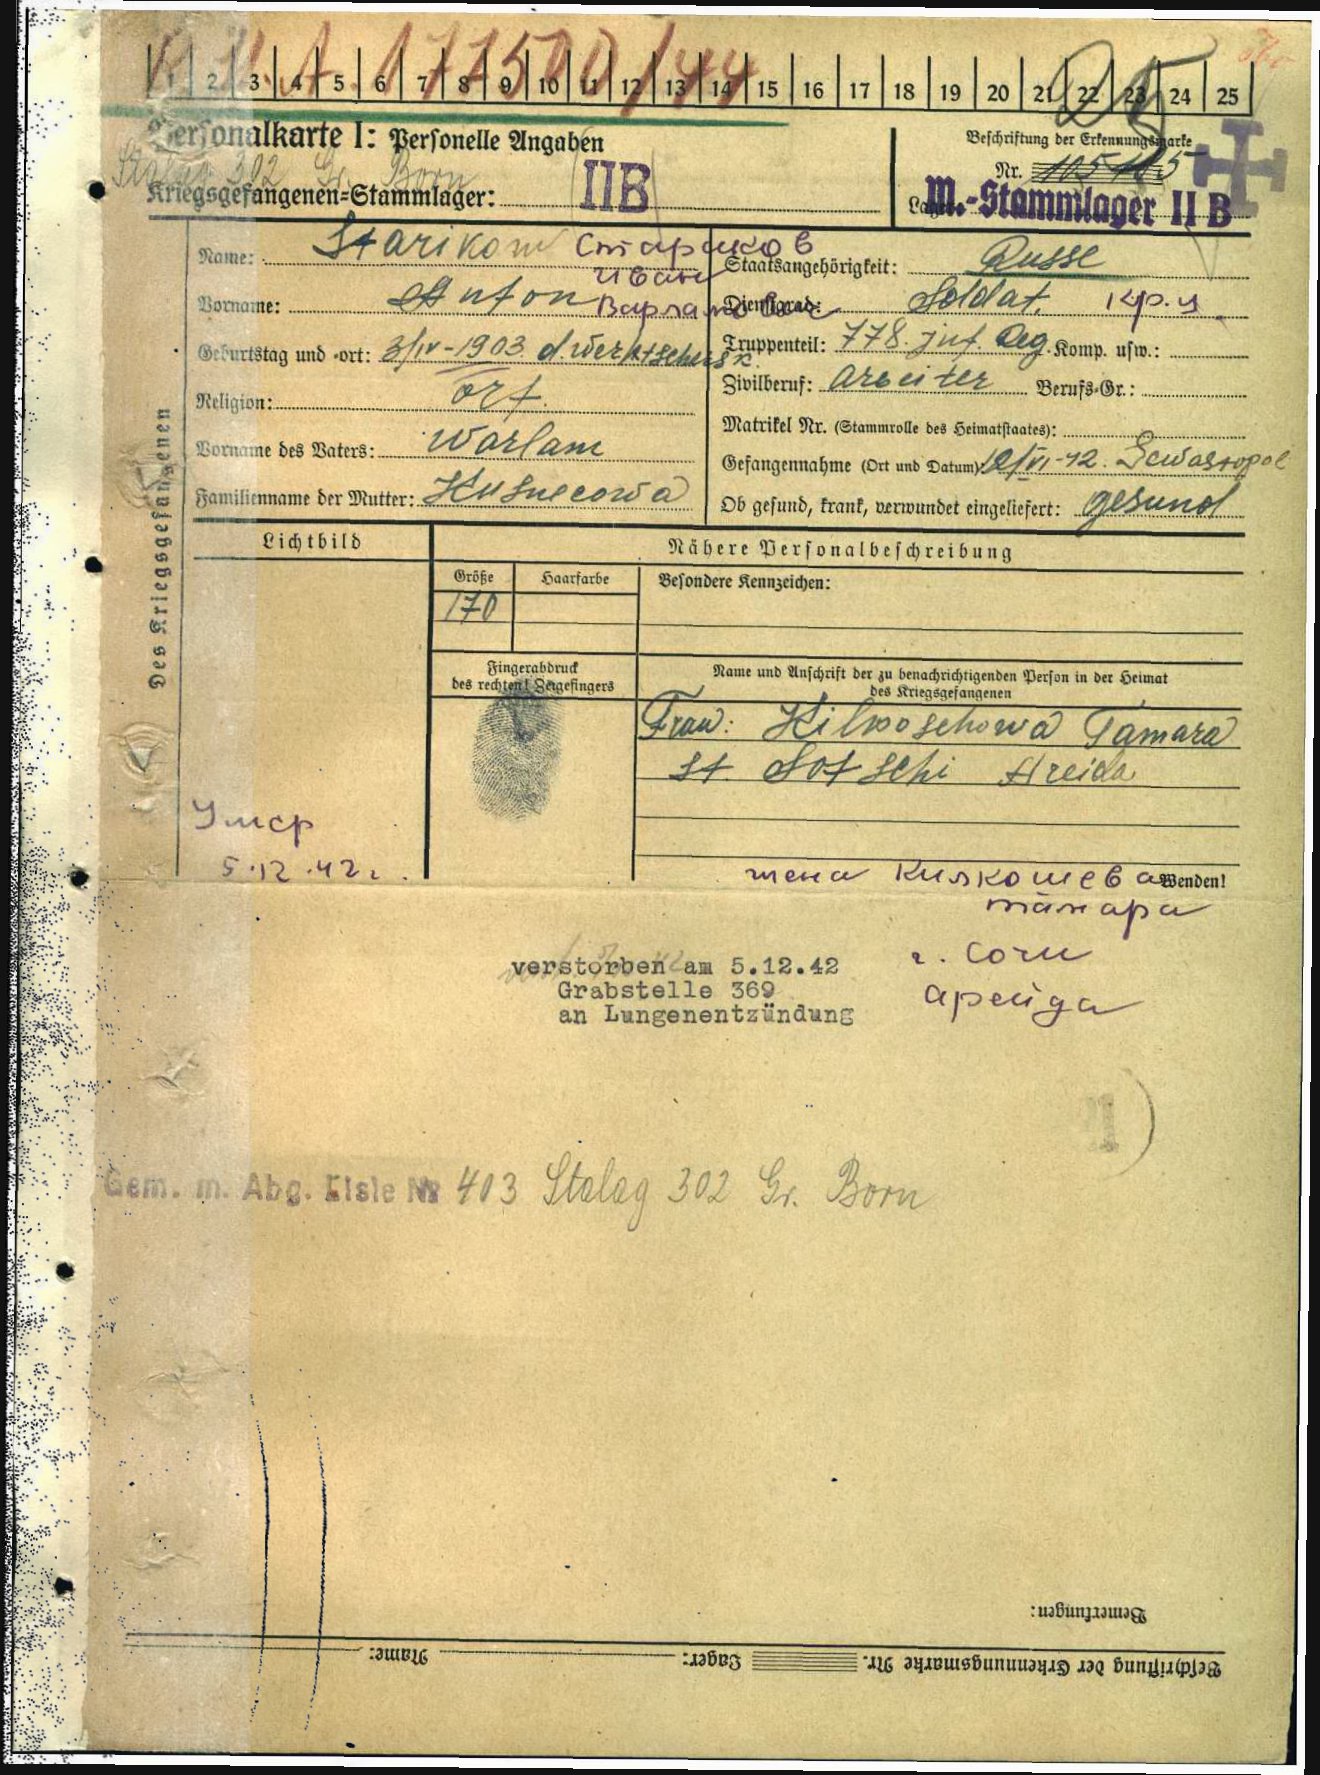 W.A. 177500/44
1 2 3 4 5 6 7 8 9 10 11 12 13 14 15 16 17 18 19 20 21 22 23 24 25
Personalkarte I: Personelle Angaben
Beschriftung der Erkennungsmarke
Stalag 302 Gr. Born
Nr. 105185
Kriegsgefangenen-Stammlager: II B
M.-Stammlager II B
Des Kriegsgefangenen
Name: Starikow Стариков
Staatsangehörigkeit: Russe
Иван
Vorname: Anton Варламович
Dienstgrad: Soldat. кр-ц
Geburtstag und -ort: 3/IV-1903 d.
Truppenteil: 778. Inf. Reg. Komp. usw.:
Religion: ort.
Zivilberuf: Arbeiter Berufs-Gr.:
Matrikel Nr. (Stammrolle des Heimatstaates):
Vorname des Vaters: Warlam
Gefangennahme (Ort und Datum): /VI-42. Sewastopol
Familienname der Mutter: Kusnecowa
Ob gesund, krank, verwundet eingeliefert: gesund
Lichtbild
Nähere Personalbeschreibung
Größe Haarfarbe Besondere Kennzeichen:
170
Fingerabdruck
des rechten! Zeigefingers
Name und Anschrift der zu benachrichtigenden Person in der Heimat
des Kriegsgefangenen
Frau: Kilkoschowa Tamara
st Sotschi Areida
Умер
5.12.42г.
жена Килкошева
Wenden!
тамара
г. Сочи
Арейда
verstorben am 5.12.42
Grabstelle 369
an Lungenentzündung
Gem. m. Abg. Liste № 403 Stalag 302 Gr. Born
Bemerkungen:
Beschriftung der Erkennungsmarke Nr. Lager: Name: